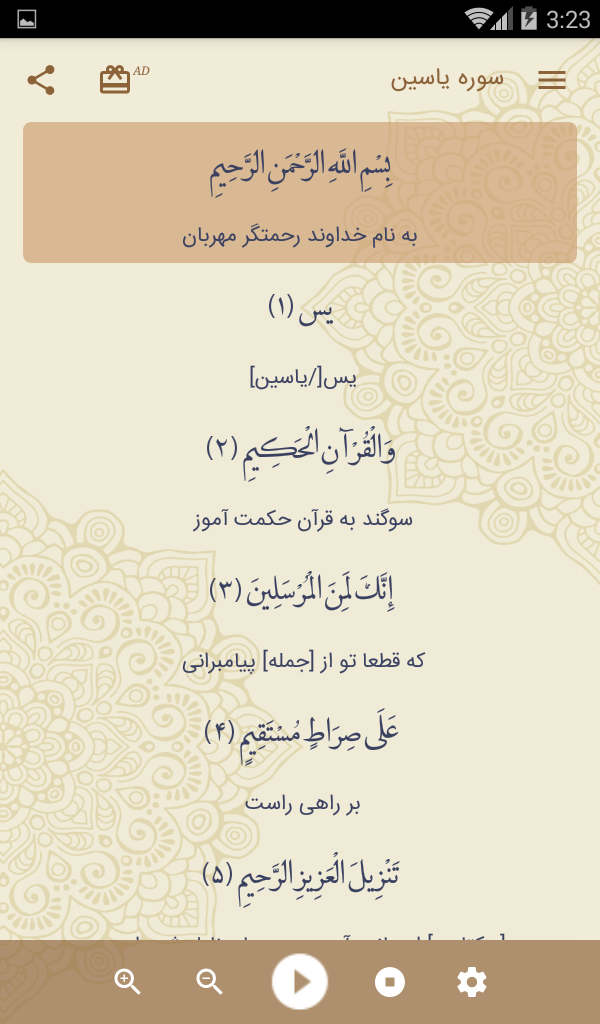 3:23
سوره یاسین
AD
بِسْمِ اللَّهِ الرَّحْمَنِ الرَّحِيمِ
به نام خداوند رحمتگر مهربان
يس (۱)
یس[/یاسین]
وَالْقُرْآنِ الْحَكِيمِ (۲)
سوگند به قرآن حکمت آموز
إِنَّكَ لَمِنَ الْمُرْسَلِينَ (۳)
که قطعا تو از [جمله] پیامبرانی
عَلَى صِرَاطٍ مُسْتَقِيمٍ (۴)
بر راهی راست
تَنْزِيلَ الْعَزِيزِ الرَّحِيمِ (۵)